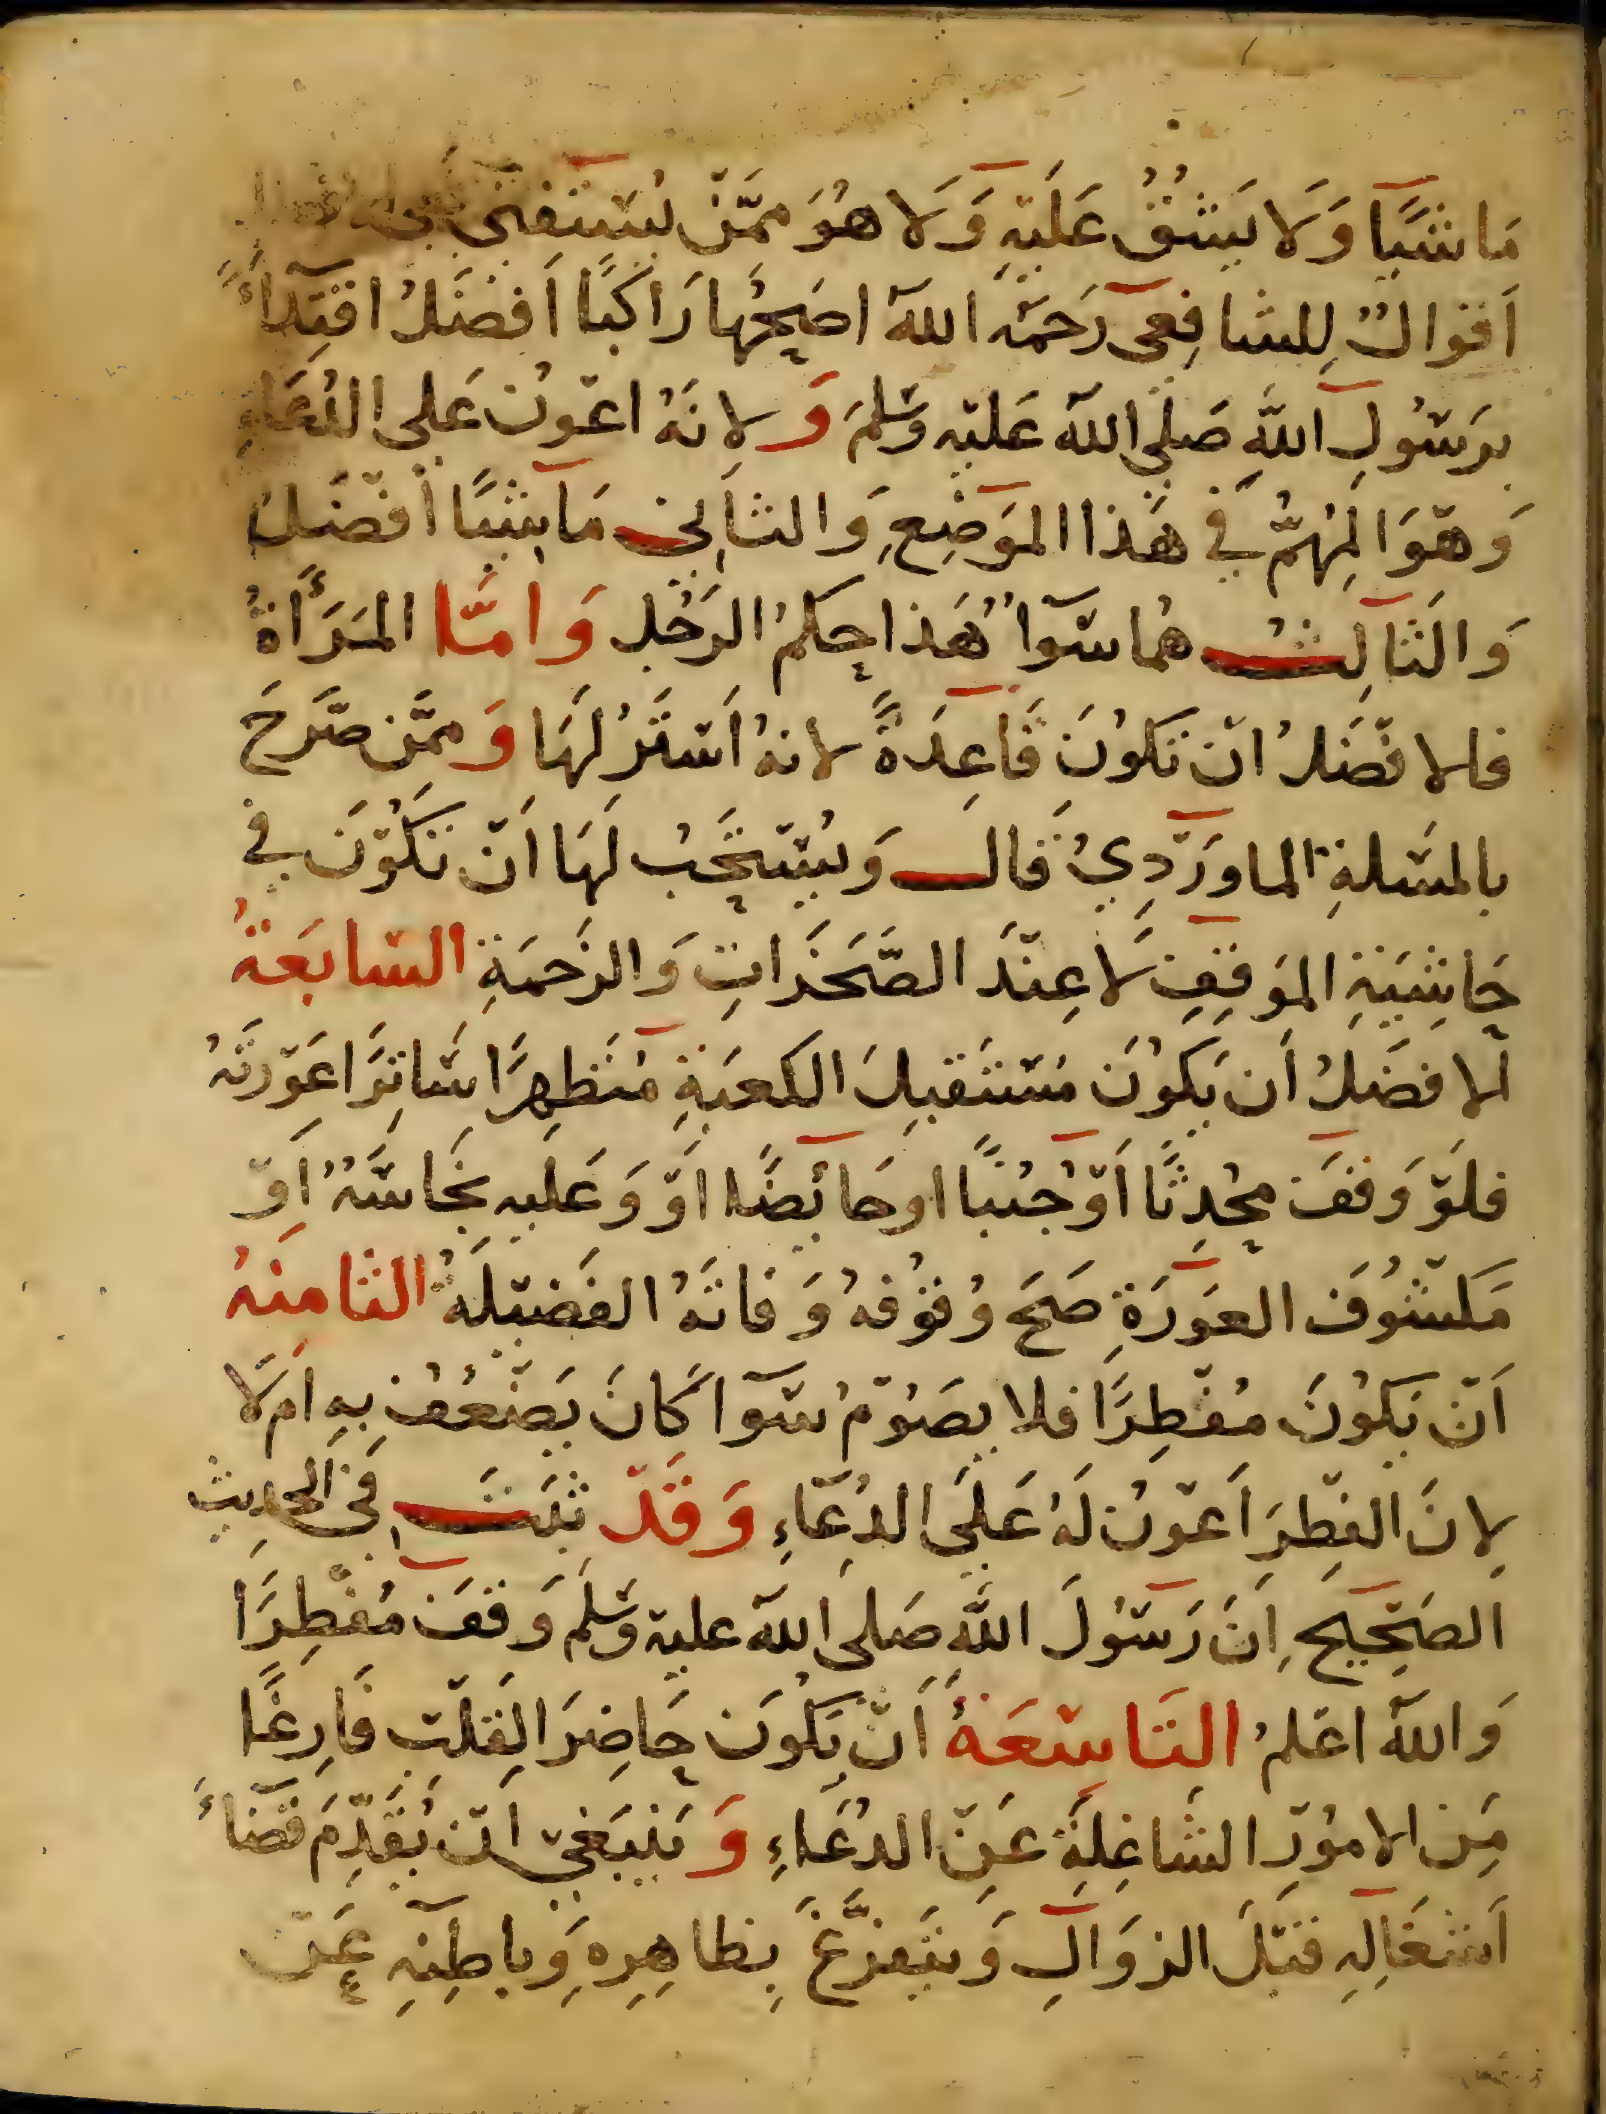 مَاشيًا وَلَا يَشُقُّ عَلَيْهِ وَلَا هُوَ ممَّنْ يُسْتَفتَى
اَقوالٌ لِلشافِعى رَحمَهُ اللهُ اصَحُّها رَاكبًا اَفضَلُ اقتِدَآءً
برَسُولِ اللهِ صَلى الله عَليْهِ وَسَلمَ وَلانَهُ اعْونُ عَلى الدُعَاءِ
وَهْوَ المُهِمُّ فِي هَذا المَوضِعِ وَالثانِى مَاشيًا أفْضَلُ
وَالثَالِثُ هُما سَوَآءٌ هَذا حكمُ الرَجُلِ وَامَّا المَرَأَةُ
فالافْضَلُ انْ تَكونَ قَاعِدَةً لانهُ اَسْتَرُ لَهَا وَممَّن صَّرَحَ
بالمَسلةِ الماوَرْدِيُ قَالَ وَيُسْتحَبُ لَهَا اَنْ تَكُوْنَ فِي
حَاشِيَةِ المَوقِفِ لَا عِنْدَ الصَّخَرَاتِ وَالزَحمَةِ السَّابَعَةُ
لَافضَلُ اَن يَكُونَ مُسْتَقبِلَ الكعبَةِ مُتَطهِرًا سَاتِرًا عَوْرتَهُ
فلَوْ وَقفَ محْدِثًا اَوْ جُنبًا اوحَائِضًا اَوْ وَعَليهِ نجَاسَةٌ اَوْ
مَكشُوْفَ العَورَةِ صَحَ وُقوُفهُ وَفاتَهُ الفَضيْلَةُ الثَامِنَهُ
اَنْ يَكوُنَ مُفْطِرًا فلا يصَوُمْ سَوَآ كَانَ يَضْعُفُ بهِ اَم لَا
لِانَ الفِطِرَ اَعْونُ لَهُ عَلَى الدُعَاءِ وَقَدْ ثبَتَ فَى الحَدِيثِ
الصَحِيحِ اَنَ رَسوُلَ اللهِ صَلى اللهُ عليْهِ وَسَلمَ وَقفَ مُفْطِرًا
وَاللهُ اعْلمُ التَاسِعَةُ اَنْ يَكُونَ حَاضِرَ القَلْبِ فَارِغًا
مِنَ الامُوْرِ الشَاغِلَةِ عَنْ الدُعَاءِ وَيَنبَغِيْ اَنْ يُقَدِّمَ قضَآءَ
اَشغَالِهِ قَبْلَ الزوَالِ وَيتَفرَّغَ بِظاهِرِهِ وَباطِنِهِ عَنْ